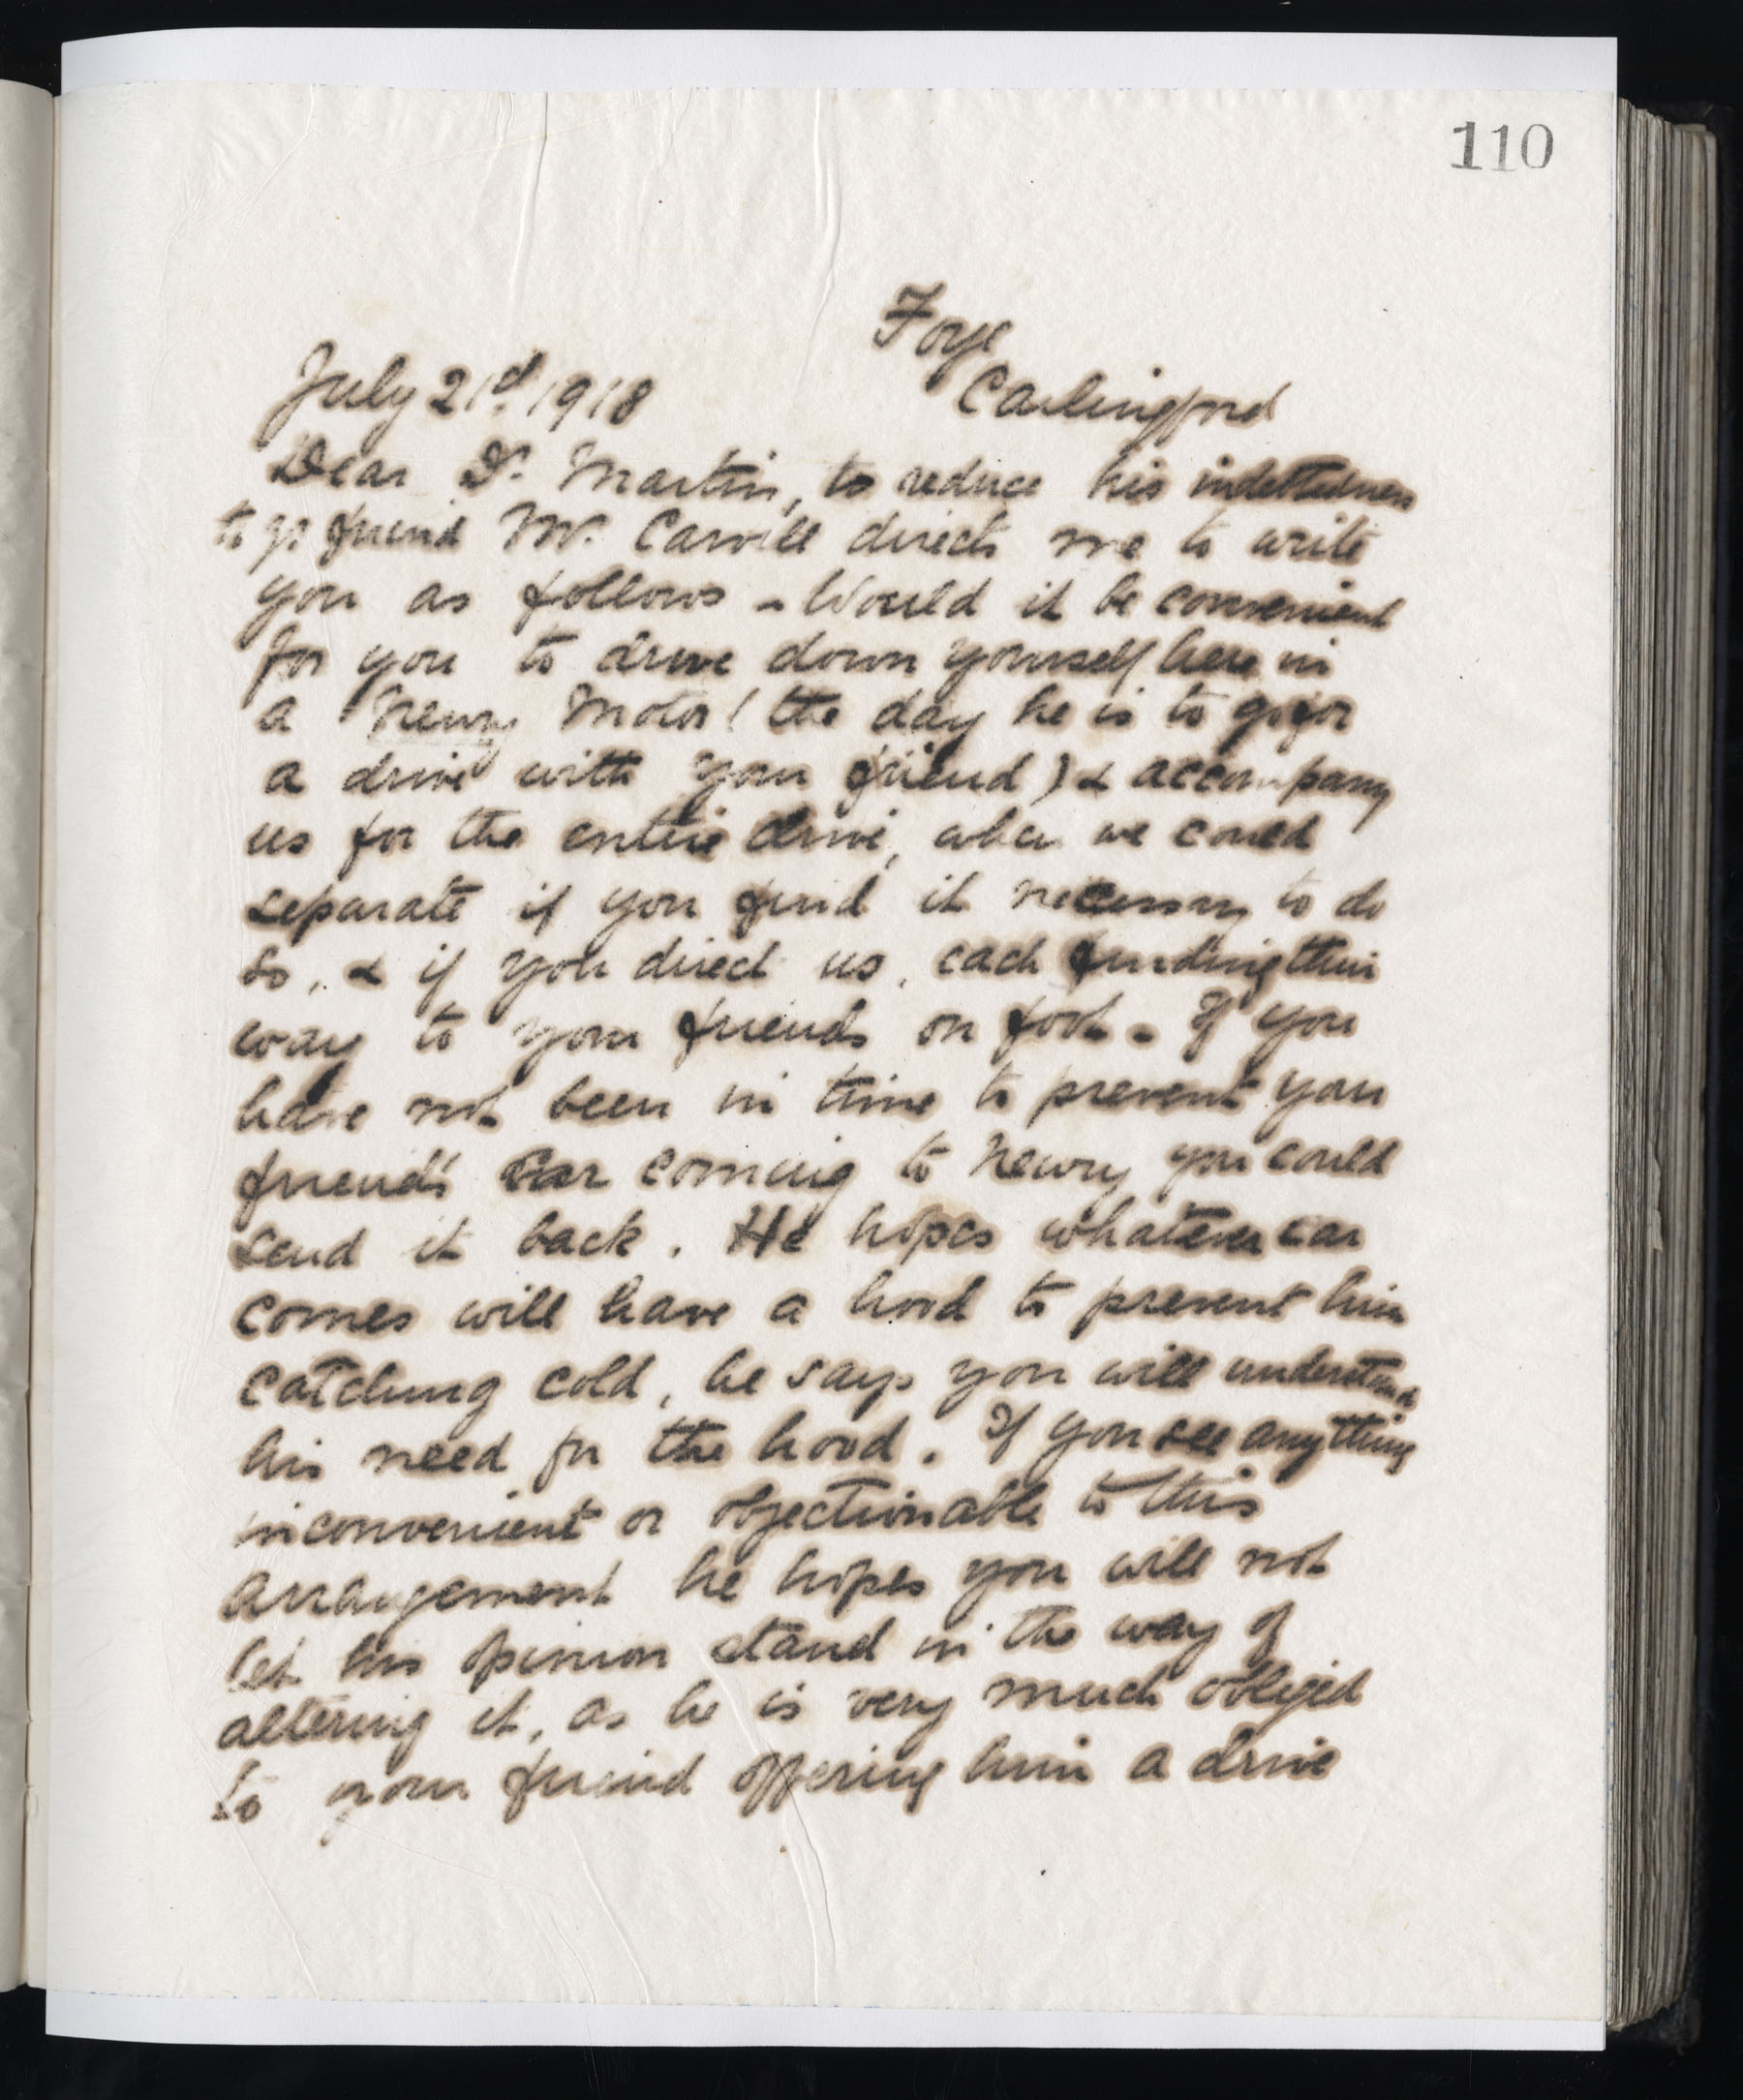 110
Foye
July 21d. 1918 Carlingford
Dear Dr. Martin, to reduce his indettedness
to yr friend Mr. Carvill directs me to write
you as follows - Would it be convenient
for you to drive down yourself here in
a Newry Motor (the day he is to go for
a drive with your friend) & accompany
us for the entire drive, when we could
separate if you find it necessary to do
so, & if you direct us, each finding their
way to your friends on foot - If you
have not been in time to prevent your
friend's car coming to Newry you could
send it back. He hopes whatever car
comes will have a hood to prevent him
catching cold, he says you will understand
his need for the hood. If you see anything
inconvenient or objectionable to this
arrangement he hopes you will not
let his opinion stand in the way of
altering it, as he is very much obliged
to your friend offering him a drive